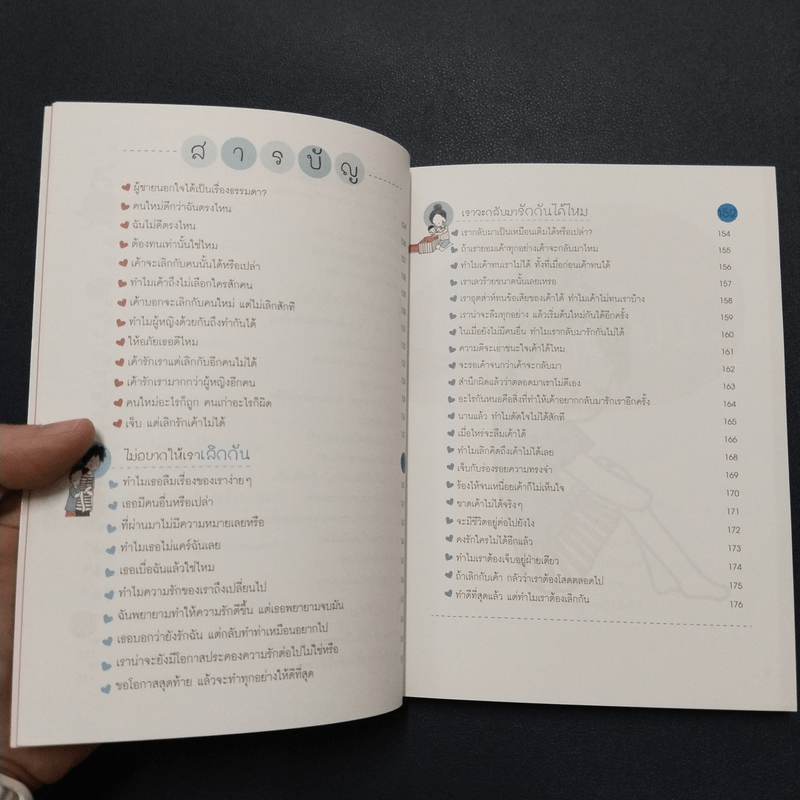 สารบัญ
ผู้ชายนอกใจได้เป็นเรื่องธรรมดา?
คนใหม่ดีกว่าฉันตรงไหน
ฉันไม่ดีตรงไหน
ต้องทนเท่านั้นใช่ไหม
เค้าจะเลิกกับคนนั้นได้หรือเปล่า
ทำไมเค้าถึงไม่เลือกใครสักคน
เค้าบอกจะเลิกกับคนใหม่ แต่ไม่เลิกสักที
ทำไมผู้หญิงด้วยกันถึงทำกันได้
ให้อภัยเธอดีไหม
เค้ารักเราแต่เลิกกับอีกคนไม่ได้
เค้ารักเรามากกว่าผู้หญิงอีกคน
คนใหม่อะไรก็ถูก คนเก่าอะไรก็ผิด
เจ็บ แต่เลิกรักเค้าไม่ได้
ไม่อยากให้เราเลิกกัน
ทำไมเธอลืมเรื่องของเราง่ายๆ
เธอมีคนอื่นหรือเปล่า
ที่ผ่านมาไม่มีความหมายเลยหรือ
ทำไมเธอไม่แคร์ฉันเลย
เธอเบื่อฉันแล้วใช่ไหม
ทำไมความรักของเราถึงเปลี่ยนไป
ฉันพยายามทำให้ความรักดีขึ้น แต่เธอพยายามจบมัน
เธอบอกว่ายังรักฉัน แต่กลับทำท่าเหมือนอยากไป
เราน่าจะยังมีโอกาสประคองความรักต่อไปไม่ใช่หรือ
ขอโอกาสสุดท้าย แล้วจะทำทุกอย่างให้ดีที่สุด
เราจะกลับมารักกันได้ไหม 152
เรากลับมาเป็นเหมือนเดิมได้หรือเปล่า? 154
ถ้าเรายอมเค้าทุกอย่างเค้าจะกลับมาไหม 155
ทำไมเค้าทนเราไม่ได้ ทั้งที่เมื่อก่อนเค้าทนได้ 156
เราเลวร้ายขนาดนั้นเลยเหรอ 157
เราอุตส่าห์ทนข้อเสียของเค้าได้ ทำไมเค้าไม่ทนเราบ้าง 158
เราน่าจะลืมทุกอย่าง แล้วเริ่มต้นใหม่กันได้อีกครั้ง 159
ในเมื่อยังไม่มีคนอื่น ทำไมเรากลับมารักกันไม่ได้ 160
ความดีจะเอาชนะใจเค้าได้ไหม 161
จะรอเค้าจนกว่าเค้าจะกลับมา 162
สำนึกผิดแล้วว่าตลอดมาเราไม่ดีเอง 163
อะไรกันหนอคือสิ่งที่ทำให้เค้าอยากกลับมารักเราอีกครั้ง 164
นานแล้ว ทำไมตัดใจไม่ได้สักที 165
เมื่อไหร่จะลืมเค้าได้ 166
ทำไมเลิกคิดถึงเค้าไม่ได้เลย 168
เจ็บกับร่องรอยความทรงจำ 169
ร้องไห้จนเหนื่อยเค้าก็ไม่เห็นใจ 170
ขาดเค้าไม่ได้จริงๆ 171
จะมีชีวิตอยู่ต่อไปยังไง 172
คงรักใครไม่ได้อีกแล้ว 173
ทำไมเราต้องเจ็บอยู่ฝ่ายเดียว 174
ถ้าเลิกกับเค้า กลัวว่าเราต้องโสดตลอดไป 175
ทำดีที่สุดแล้ว แต่ทำไมเราต้องเลิกกัน 176